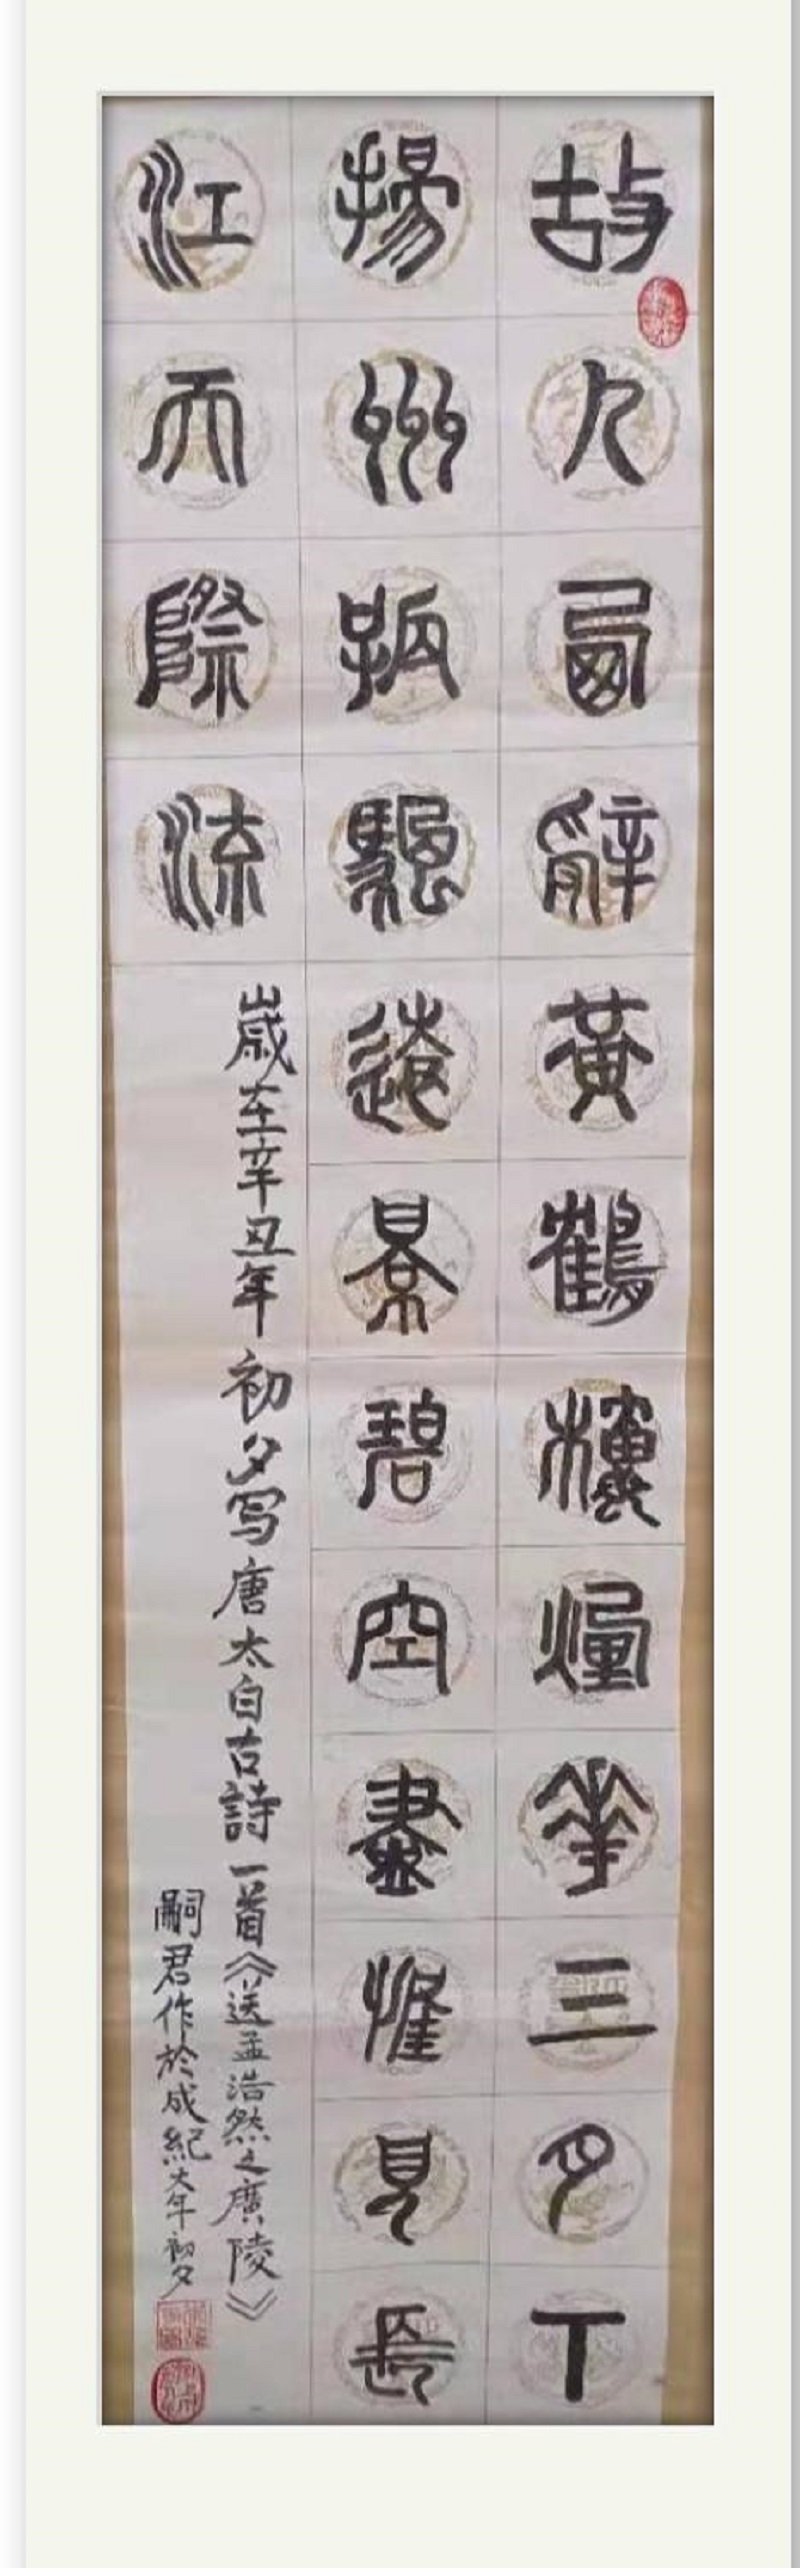 故人西辭黃鶴樓煙華三月下
揚州孤帆遠景碧空盡惟見長
江天際流
歲在辛丑年初夕写唐太白古詩一首《送孟浩然之廣陵》
嗣君作於成紀大年初夕